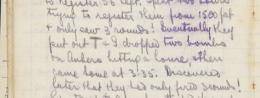 to register 36 dept. Spent two hours
trying to register them from 1500 feet
& only saw 3 rounds! Eventually they
put out T & I dropped two bombs
on Ankers hitting a house, then
came home at 3.35. Discovered
later that they had only fired 3 rounds!